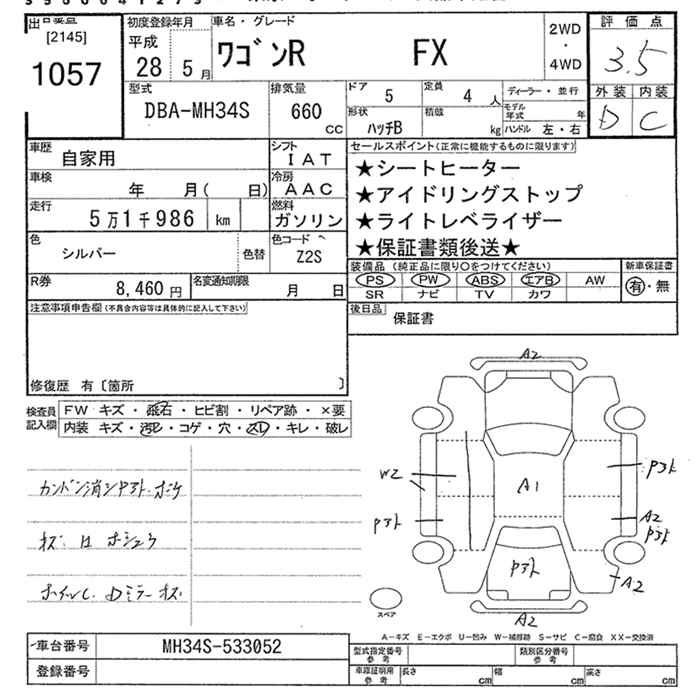 出品番号
[2145]
1057
初度登録年月
平成
28 5月
車名・グレード
ワゴンR FX
2WD
・
4WD
評価点
3.5
外装 内装
D C
型式
DBA-MH34S
排気量
660
cc
ドア
5
定員
4人
形状
ハッチB
積載
kg
ディーラー・並行
モデル年式 年
ハンドル 左・右
車歴
自家用
シフト
IAT
車検
年 月( 日)
冷房
AAC
走行
5万1千986 km
燃料
ガソリン
色
シルバー
色替
色コード
Z2S
R券
8,460円
名変通知期限
月 日
セールスポイント(正常に機能するものに限ります)
★シートヒーター
★アイドリングストップ
★ライトレベライザー
★保証書類後送★
装備品(純正品に限り○をつけてください)
PS PW ABS エアB AW
SR ナビ TV カワ
新車保証書
有・無
後日品
保証書
注意事項申告欄(不具合内容等は具体的に記入して下さい)
修復歴 有〔箇所 〕
検査員記入欄
FW キズ・飛石・ヒビ割・リペア跡・×要
内装 キズ・汚レ・コゲ・穴・スレ・キレ・破レ
A2
W2
A1
Pアト
Pアト
A2
Pアト
Pアト
A2
A2
スペア
A-キズ E-エクボ U-凹み W-補修跡 S-サビ C-腐食 XX-交換済
車台番号
MH34S-533052
登録番号
型式指定番号
参考
類別区分番号
参考
車庫証明用
参考
長さ cm
幅 cm
高さ cm